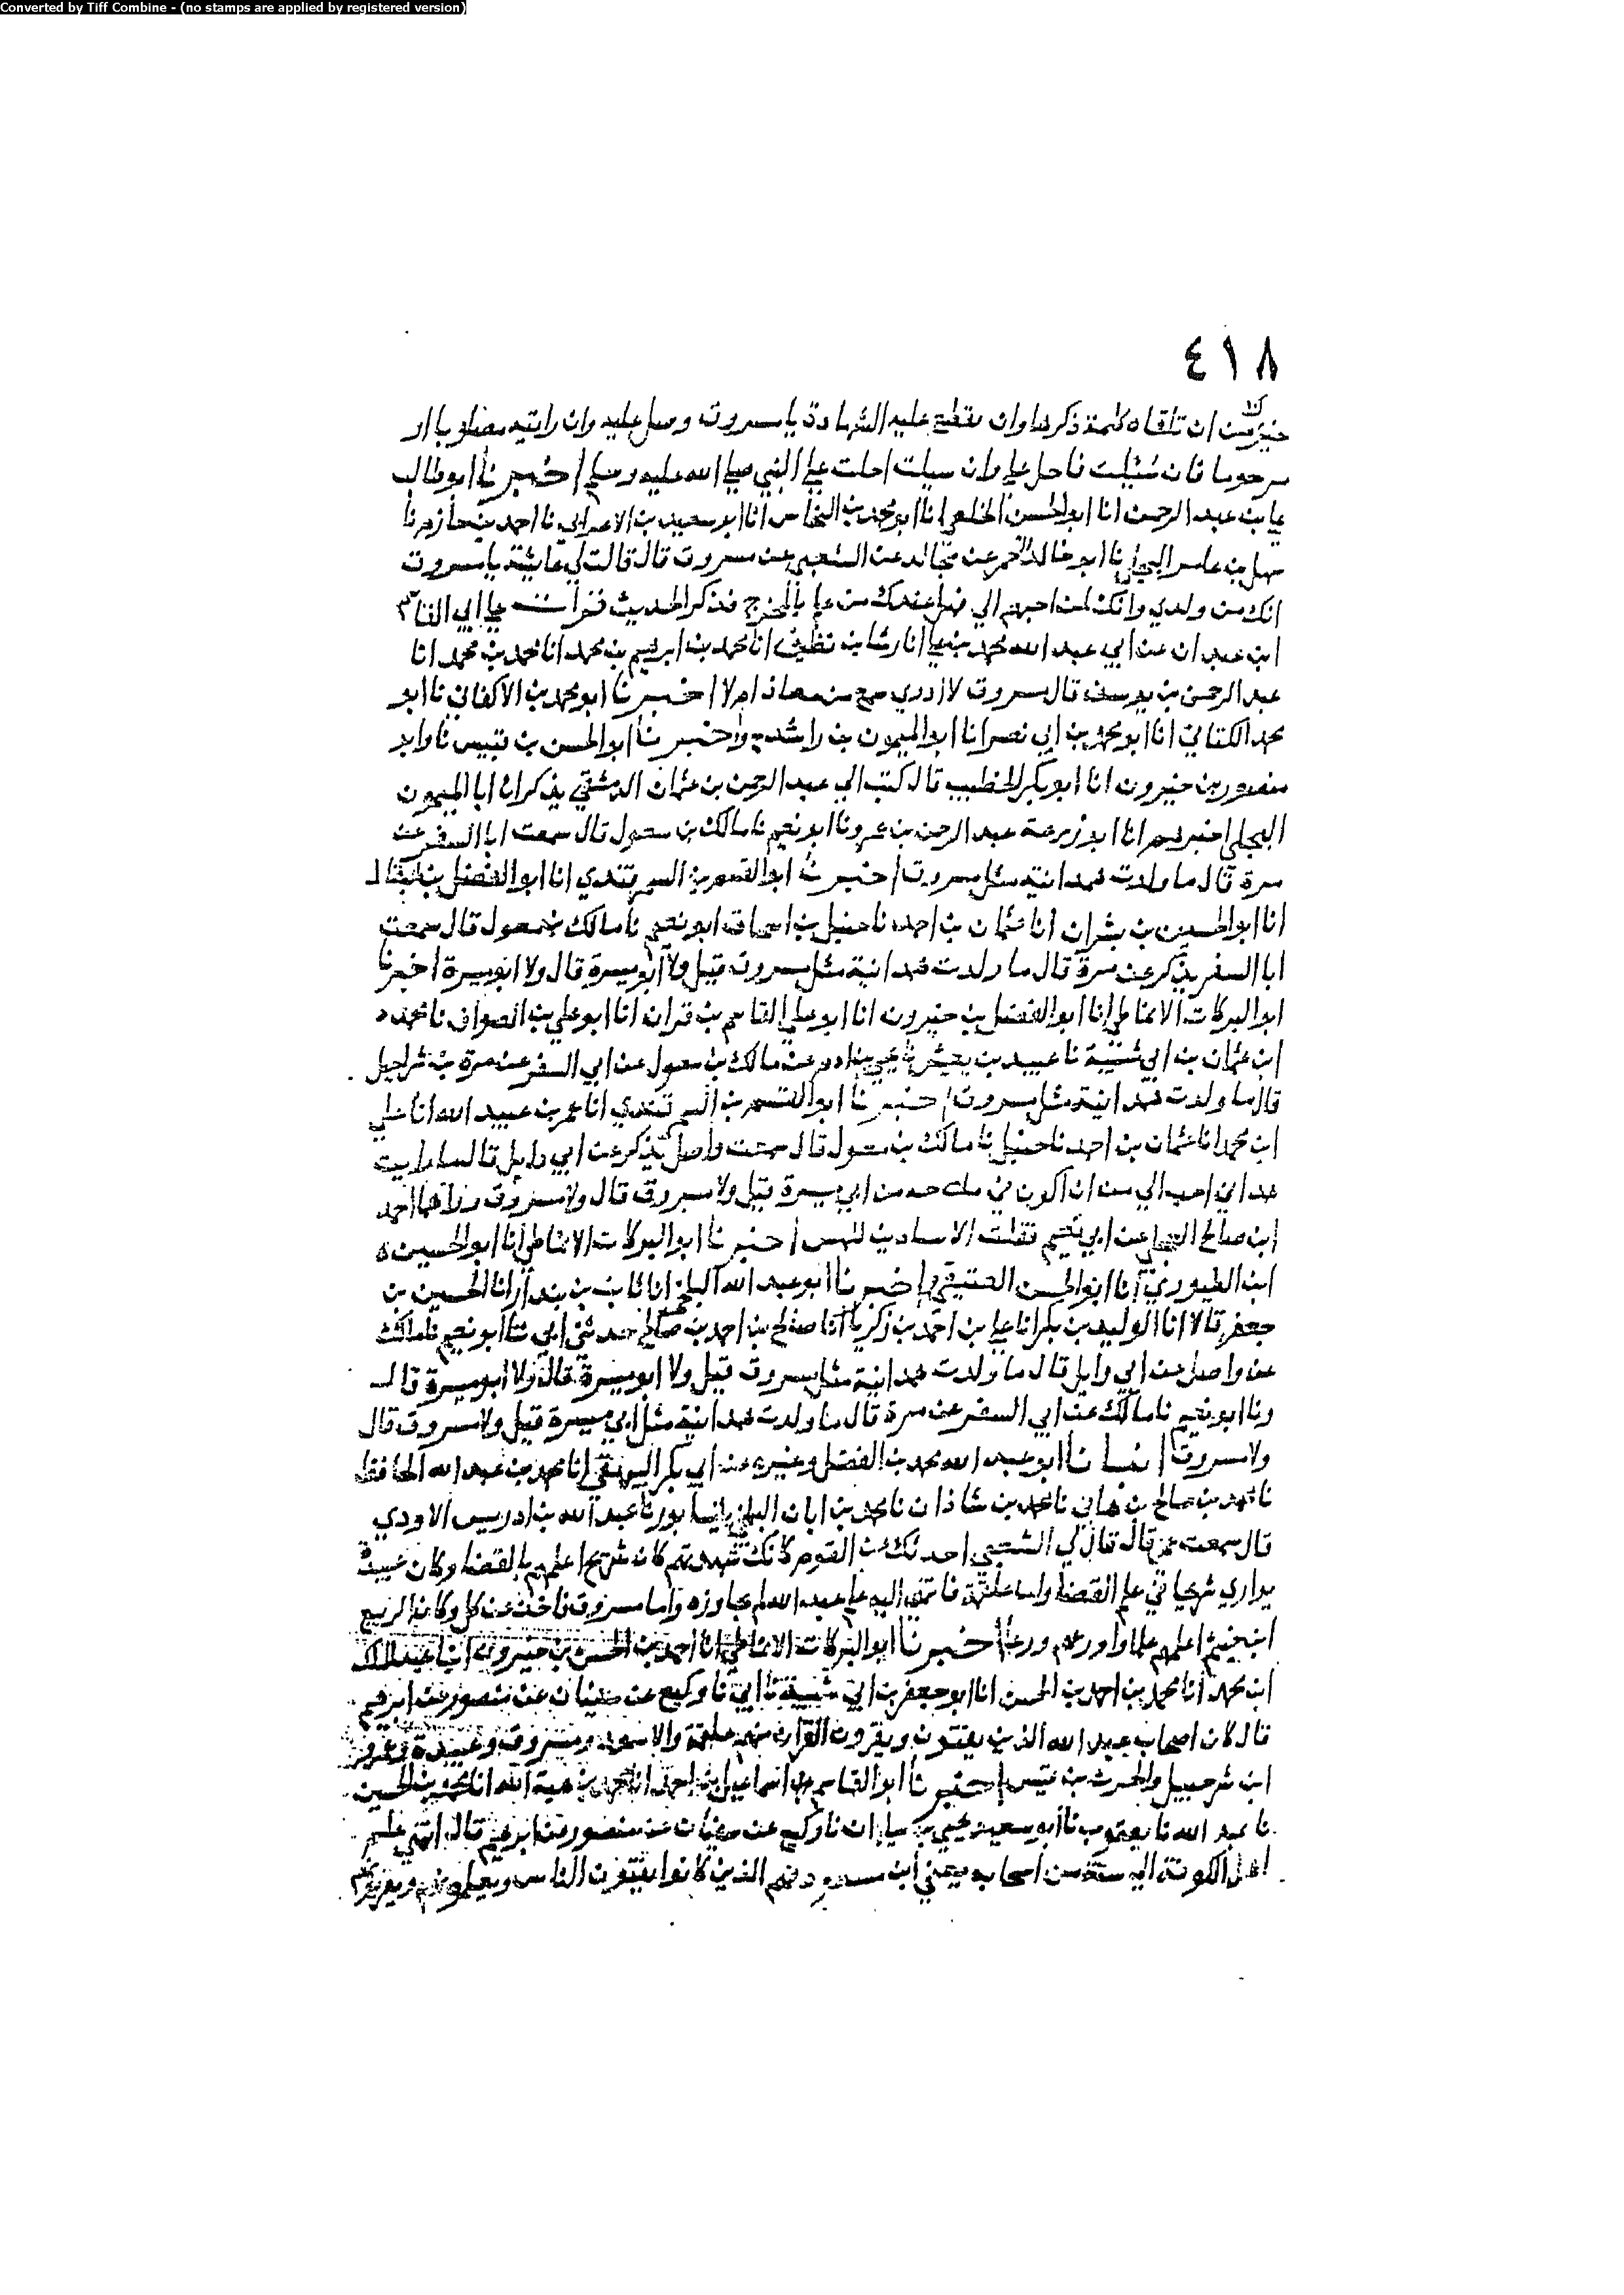 Converted by Tiff Combine - (no stamps are applied by registered version)
٤١٨
ان تلقاه كلمة ذكرها وان تقطع عليه الشهادة يا مسروق وصل عليه وان رايته مصلوبا او
مرجوما فان سئلت فاحل علي وان سيلت احلت على النبي صلى الله عليه وسلم اخبرنا ابو طالب
علي بن عبد الرحمن انا ابو الحسن الخلعي انا ابو محمد بن النحاس انا ابو سعيد بن الاعرابي نا احمد بن حازم نا
سهل بن عامر البجلي نا ابو خالد الاحمر عن مجالد عن الشعبي عن مسروق قال قالت لي عائشة يا مسروق
انك من ولدي وانك لمن احبهم الي فهل عندك من علم بالمخدج فذكر الحديث قرات على ابي القاسم
ابن عبدان عن ابي عبد الله محمد بن علي انا رشا بن نظيف انا محمد بن ابرهيم بن محمد انا محمد بن محمد انا
عبد الرحمن بن يوسف قال مسروق لا ادري سمع من معاذ ام لا اخبرنا ابو محمد بن الاكفاني نا ابو
محمد الكتاني انا ابو محمد بن ابي نصر انا ابو الميمون بن راشد واخبرنا ابو الحسن بن قبيس نا وابو
منصور بن خيرون انا ابو بكر الخطيب قال كتب الي عبد الرحمن بن عثمان الدمشقي يذكر ان ابا الميمون
البجلي اخبرهم انا ابو زرعة عبد الرحمن بن عمرو نا ابو نعيم نا مالك بن مغول قال سمعت ابا السفر عن
مرة قال ما ولدت همدانية مثل مسروق اخبرنا ابو القسم بن السمرقندي انا ابو الفضل بن البقال
انا ابو الحسين بن بشران انا عثمان بن احمد نا حنبل بن اسحاق ابو نعيم نا مالك بن مغول قال سمعت
ابا السفر يذكر عن مرة قال ما ولدت همدانية مثل مسروق قيل ولا ابو ميسرة قال ولا ابو ميسرة اخبرنا
ابو البركات الانماطي انا ابو الفضل بن خيرون انا ابو علي القاسم بن قران انا ابو علي بن الصواف نا محمد
ابن عثمان بن ابي شيبة نا عبيد بن يعيش نا يحيى بن ادم عن مالك بن مغول عن ابي السفر عن مرة بن شراحيل
قال ما ولدت همدانية مثل مسروق اخبرنا ابو القسم بن السمرقندي انا عمر بن عبيد الله انا علي
ابن محمد انا عثمان بن احمد نا حنبل نا مالك بن مغول قال سمعت واصل يذكر عن ابي وايل قال ما رايت
همداني احب الي من ان اكون في من ابي ميسرة قيل ولا مسروق قال ولا مسروق احمد
ابن صالح العجلي عن ابي نعيم فقلت الاسادين اخبرنا ابو البركات الانماطي انا ابو الحسين
ابن الطيوري انا ابو الحسن العتيقي واخبرنا ابو عبد الله البلخي انا ثابت بن بندار انا الحسين بن
جعفر قالا انا الوليد بن بكر انا علي بن احمد بن زكريا انا صالح بن احمد بن صالح حدثني ابي نا ابو نعيم نا مالك
عن واصل عن ابي وايل قال ما ولدت همدانية مثل مسروق قيل ولا ابو ميسرة قال ولا ابو ميسرة قال
ونا ابو نعيم نا مالك عن ابي السفر عن مرة قال ما ولدت همدانية مثل ابي ميسرة قيل ولا مسروق قال
ولا مسروق انبانا ابو عبد الله محمد بن الفضل وغيره عن ابي بكر البيهقي انا محمد بن عبد الله الحافظ
نا محمد بن صالح بن هاني نا محمد بن شاذان نا محمد بن ابان البلخي بنيسابور نا عبد الله بن ادريس الاودي
قال سمعت عمي قال قال لي الشعبي احدثك عن القوم كانك شهدتهم كان شريح اعلمهم بالقضا وكان عبيدة
يوازي شريحا في علم القضا واما علقمة فانتهى اليه علم عبد الله لم يجاوزه واما مسروق فاخذ عن كل وكان الربيع
ابن خثيم اعلمهم علما واورعهم ورعا اخبرنا ابو البركات الانماطي انا احمد بن الحسن بن خيرون انا عبد الملك
ابن محمد انا محمد بن احمد بن الحسن انا ابو جعفر بن ابي شيبة نا ابي نا وكيع عن سفيان عن منصور عن ابرهيم
قال كان اصحاب عبد الله الذين يفتون ويقرون القران منهم علقمة والاسود ومسروق وعبيدة وعمرو
ابن شرحبيل والحرث بن قيس اخبرنا ابو القاسم بن اسماعيل بن احمد انا محمد بن هبة الله انا محمد بن الحسين
نا عبد الله نا يعقوب نا ابو سعيد يحيى بن سليمان نا وكيع عن سفيان عن منصور عن ابرهيم قال انتهى علم
اهل الكوفة الى ستة من اصحاب يعني ابن مسعود فهم الذين كانوا يفتون الناس ويعلمونهم ويقرونهم